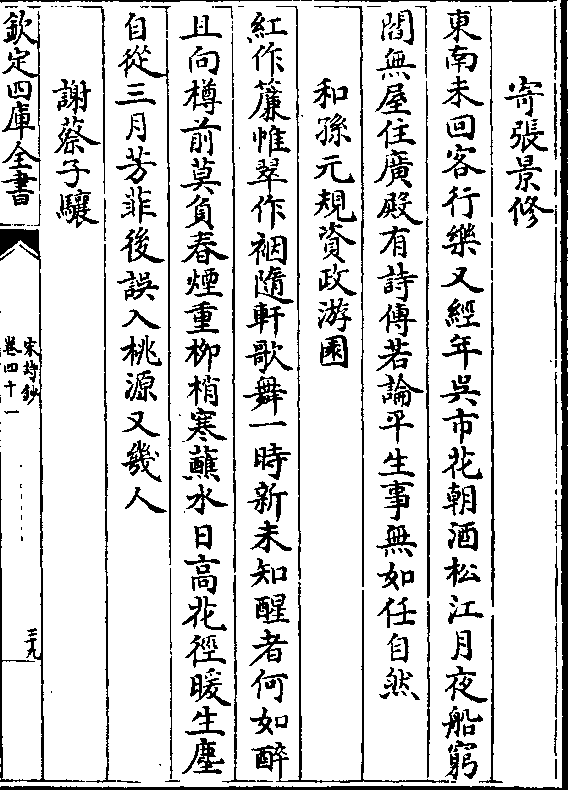 寄張景修
東南未回客行樂又經年吳市花朝酒松江月夜船窮
閻無屋住廣殿有詩傳若論平生事無如任自然
和孫元規資政游園
紅作簾帷翠作裀隨軒歌舞一時新未知醒者何如醉
且向樽前莫負春煙重柳梢寒蘸水日高花徑暖生塵
自從三月芳菲後誤入桃源又幾人
謝蔡子驤
欽定四庫全書
宋詩鈔
卷四十一
三九